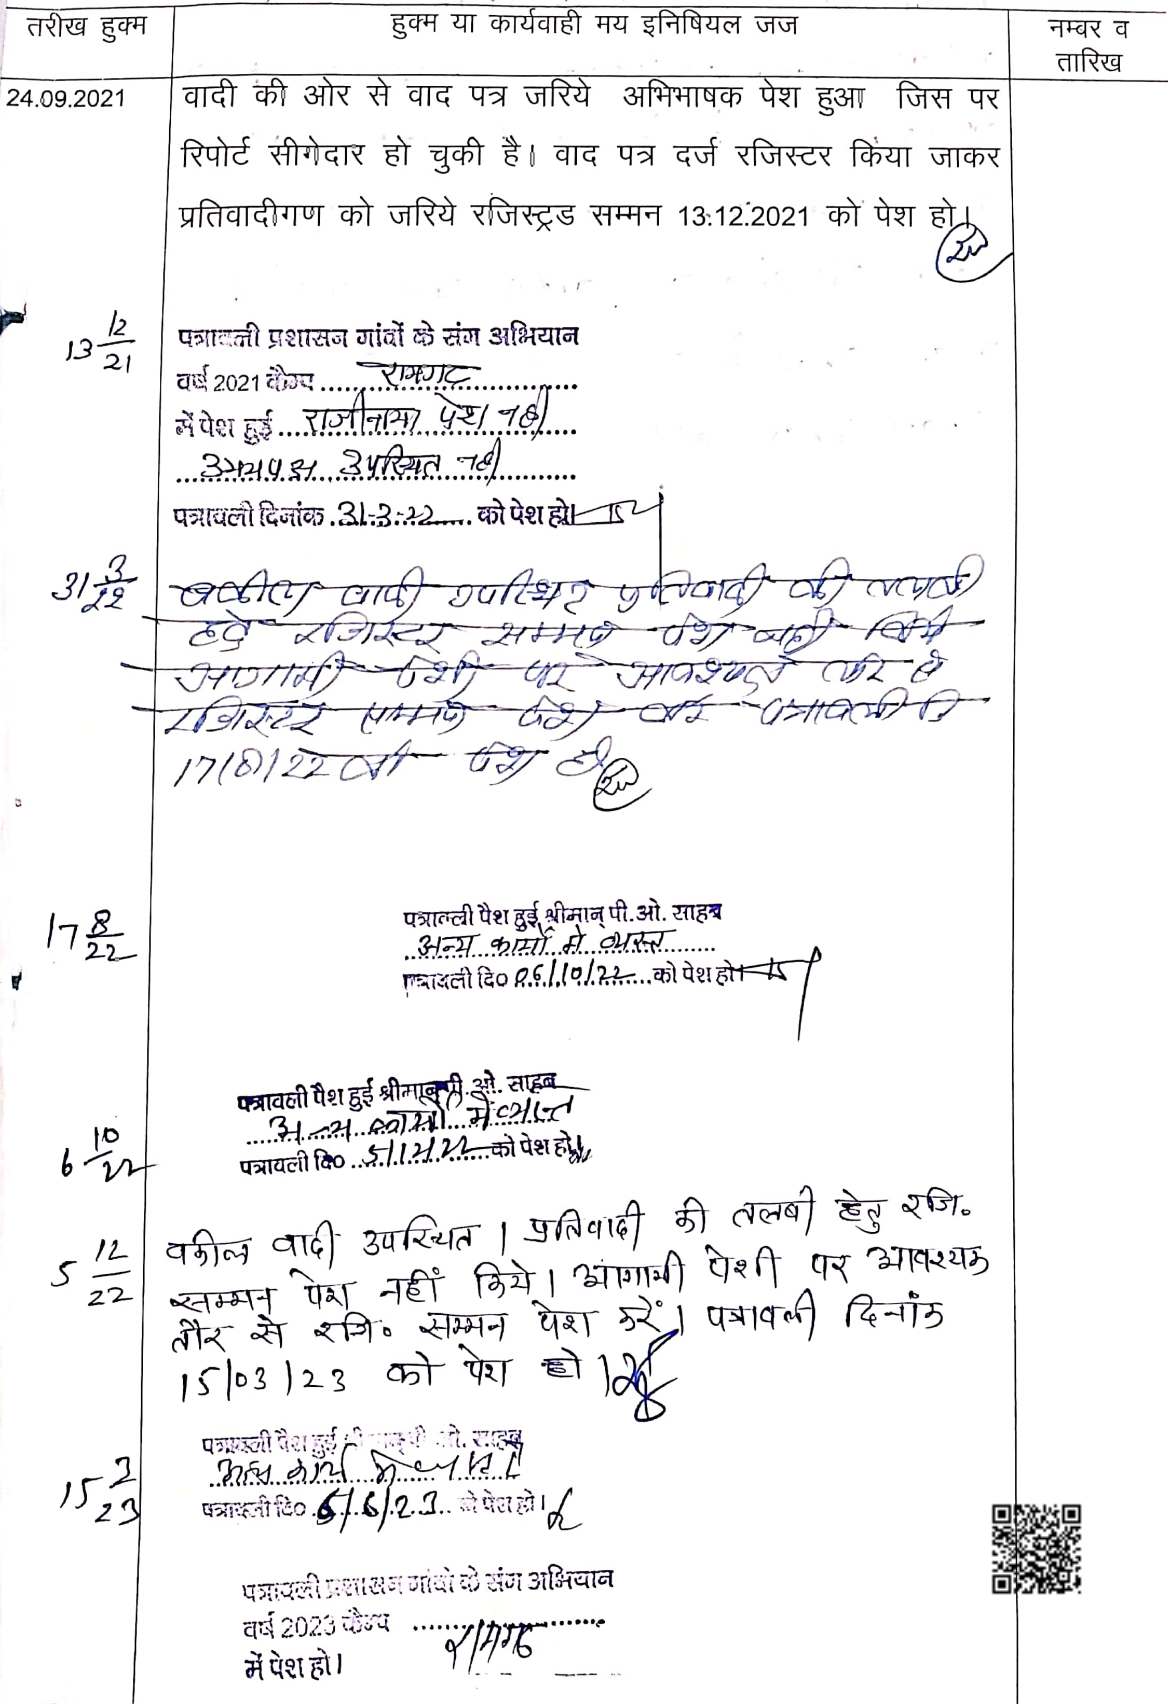 तरीख हुक्म
हुक्म या कार्यवाही मय इनिषियल जज
नम्बर व
तारिख
24.09.2021
वादी की ओर से वाद पत्र जरिये अभिभाषक पेश हुआ जिस पर
रिपोर्ट सीगेदार हो चुकी है। वाद पत्र दर्ज रजिस्टर किया जाकर
प्रतिवादीगण को जरिये रजिस्ट्रड सम्मन 13.12.2021 को पेश हो।
13 12/21
पत्रावली प्रशासन गांवों के संग अभियान
वर्ष 2021 कैम्प रामगढ
में पेश हुई राजीनामा पेश नही
उभयपक्ष उपस्थित नही
पत्रावली दिनांक 31-3-22 को पेश हो।
31 3/22
वकील वादी उपस्थित प्रतिवादी की तलबी
हेतु रजिस्टर सम्मन पेश नही किये
आगामी पेशी पर आवश्यक तौर से
रजिस्टर सम्मन पेश करे पत्रावली दि
17/8/22 को पेश हो
17 8/22
पत्राल्ली पैश हुई श्रीमान् पी.ओ. साहब
अन्य कार्यो मे व्यस्त
पत्रावली दि० 06/10/22 को पेश हो।
6 10/22
पत्रावली पैश हुई श्रीमान् पी.ओ. साहब
अन्य कार्यो मे व्यस्त
पत्रावली दि० 5/12/22 को पेश हो।
5 12/22
वकील वादी उपस्थित। प्रतिवादी की तलबी हेतु रजि०
सम्मन पेश नहीं किये। आगामी पेशी पर आवश्यक
तौर से रजि० सम्मन पेश करें। पत्रावली दिनांक
15/03/23 को पेश हो।
15 3/23
पत्रावली पैश हुई श्रीमान् पी.ओ. साहब
अन्य कार्य मे व्यस्त
पत्रावली दि० 6/6/23 को पेश हो।
पत्रावली प्रशासन गांवो के संग अभियान
वर्ष 2023 कैम्प रामगढ
में पेश हो।